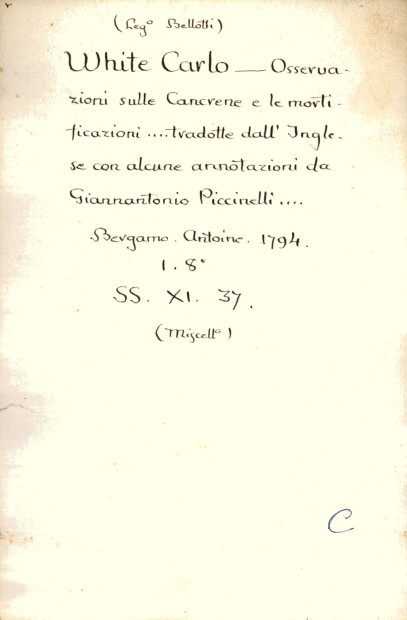 (Legº Bellotti)
White Carlo — Osserva-
zioni sulle Cancrene e le morti-
ficazioni .... tradotte dall' Ingle-
se con alcune annotazioni da
Giannantonio Piccinelli ....
Bergamo. Antoine. 1794.
1. 8°
SS. XI. 37.
(Miscellª)
C